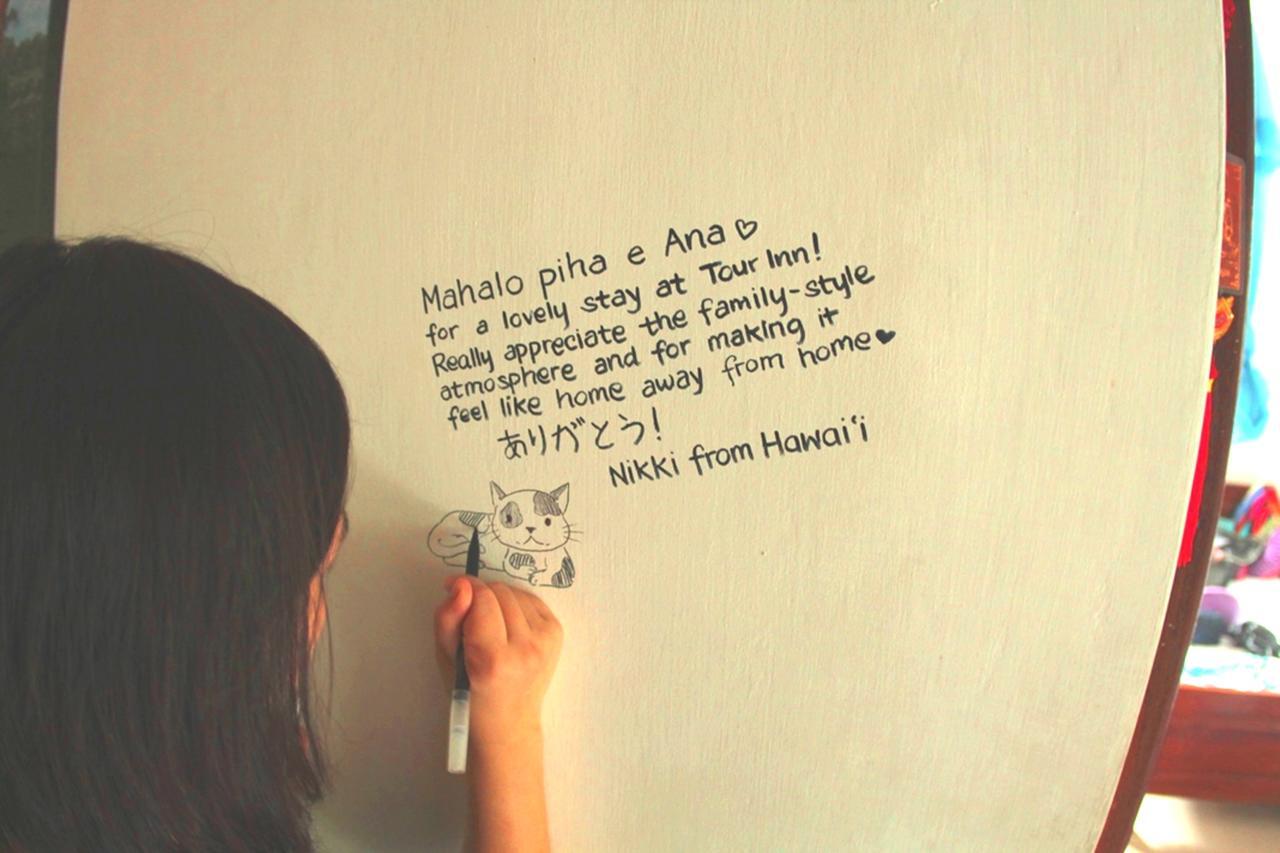 Mahalo piha e Ana ♡
for a lovely stay at Tour Inn!
Really appreciate the family-style
atmosphere and for making it
feel like home away from home♥
ありがとう!
Nikki from Hawai‘i